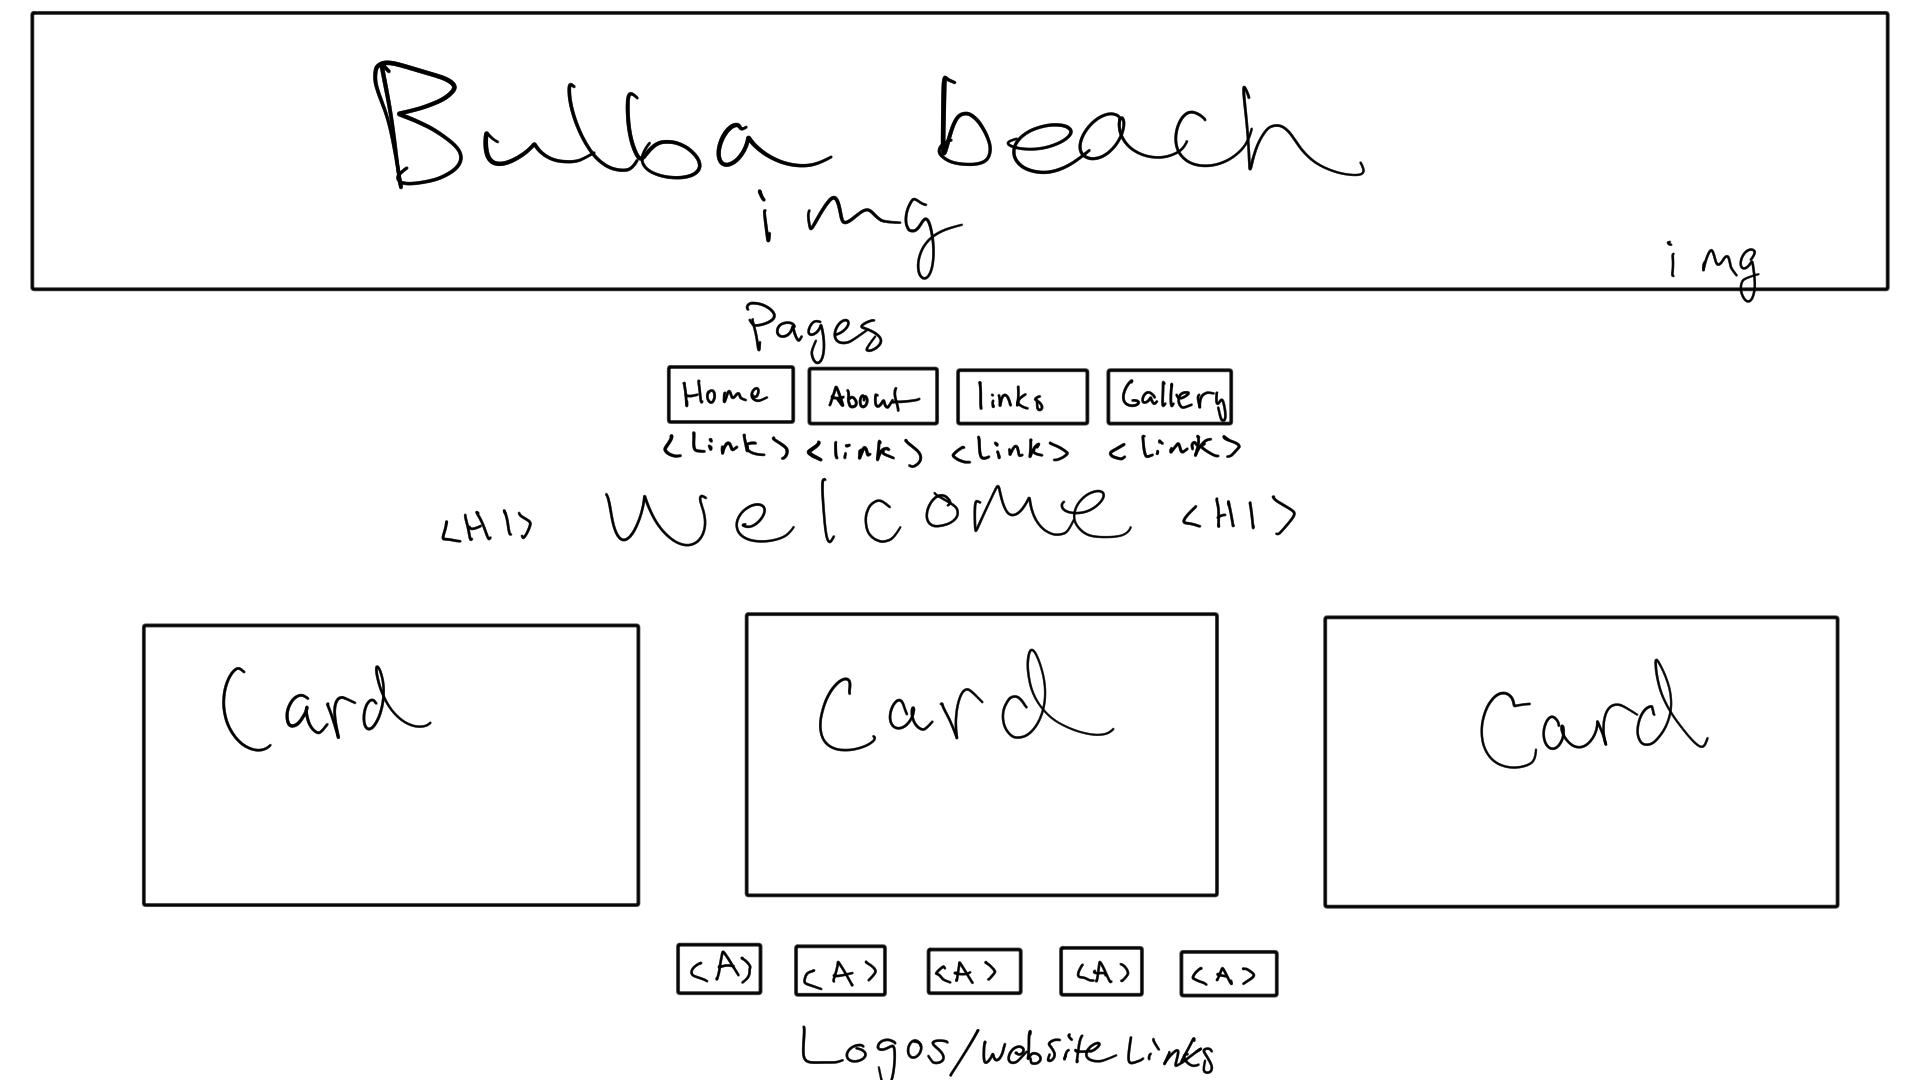 Bulba beach
img
img
Pages
Home About links Gallery
<Link> <link> <Link> <Link>
<H1> Welcome <H1>
Card Card Card
<A> <A> <A> <A> <A>
Logos/website Links